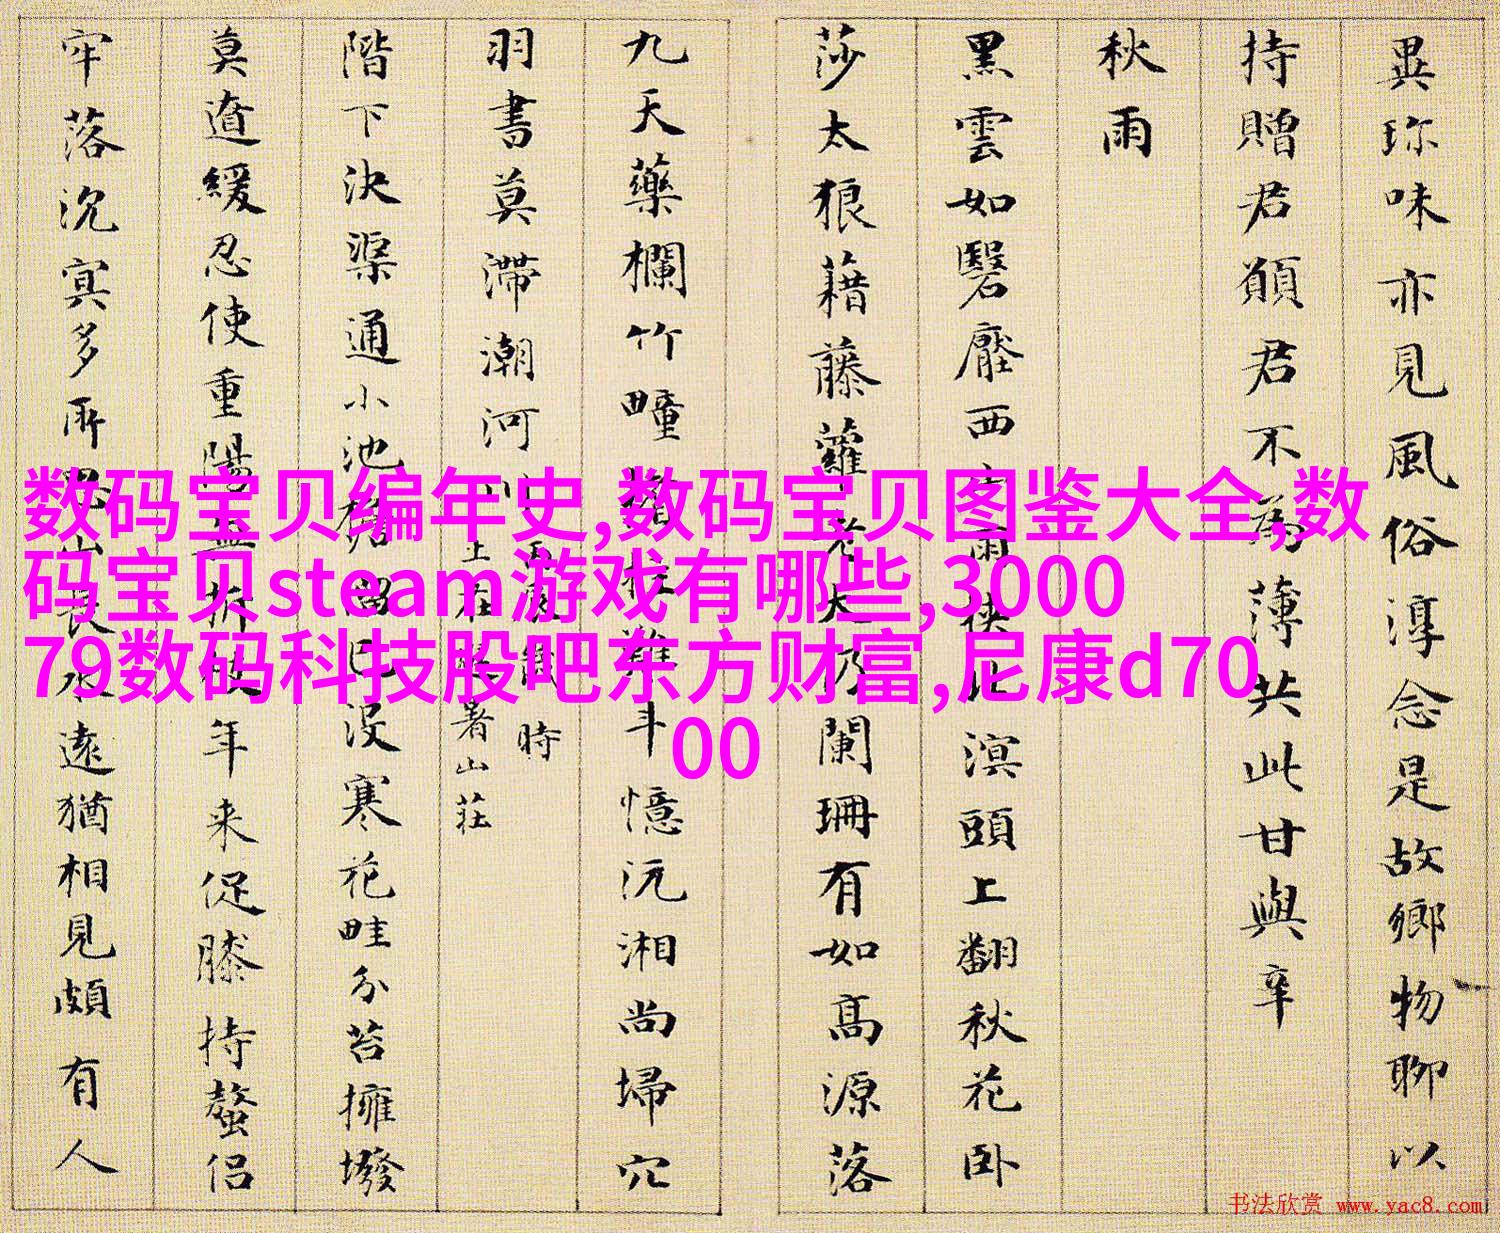 異珎味亦見風俗淳念是故鄉物聊以
持贈君願君不為薄共此甘與辛
秋雨
黑雲如翳壓西雨狭此溟頭上翻秋花卧
莎太狼藉藤蘿老大乃闌珊有如高源落
九天藥欄竹疃斗憶沅湘尚埽穴
羽書莫滯潮河川時
上在署山莊
階下決渠通小池留已没寒花畦分苔擁墢
莫道緩忍使重陽年来促膝持螯侣
牢落沉冥多所山長遠猶相見頗有人
数码宝贝编年史,数码宝贝图鉴大全,数
码宝贝steam游戏有哪些,3000
79数码科技股吧东方财富,尼康d70
00
书法欣赏 www.yac8.com